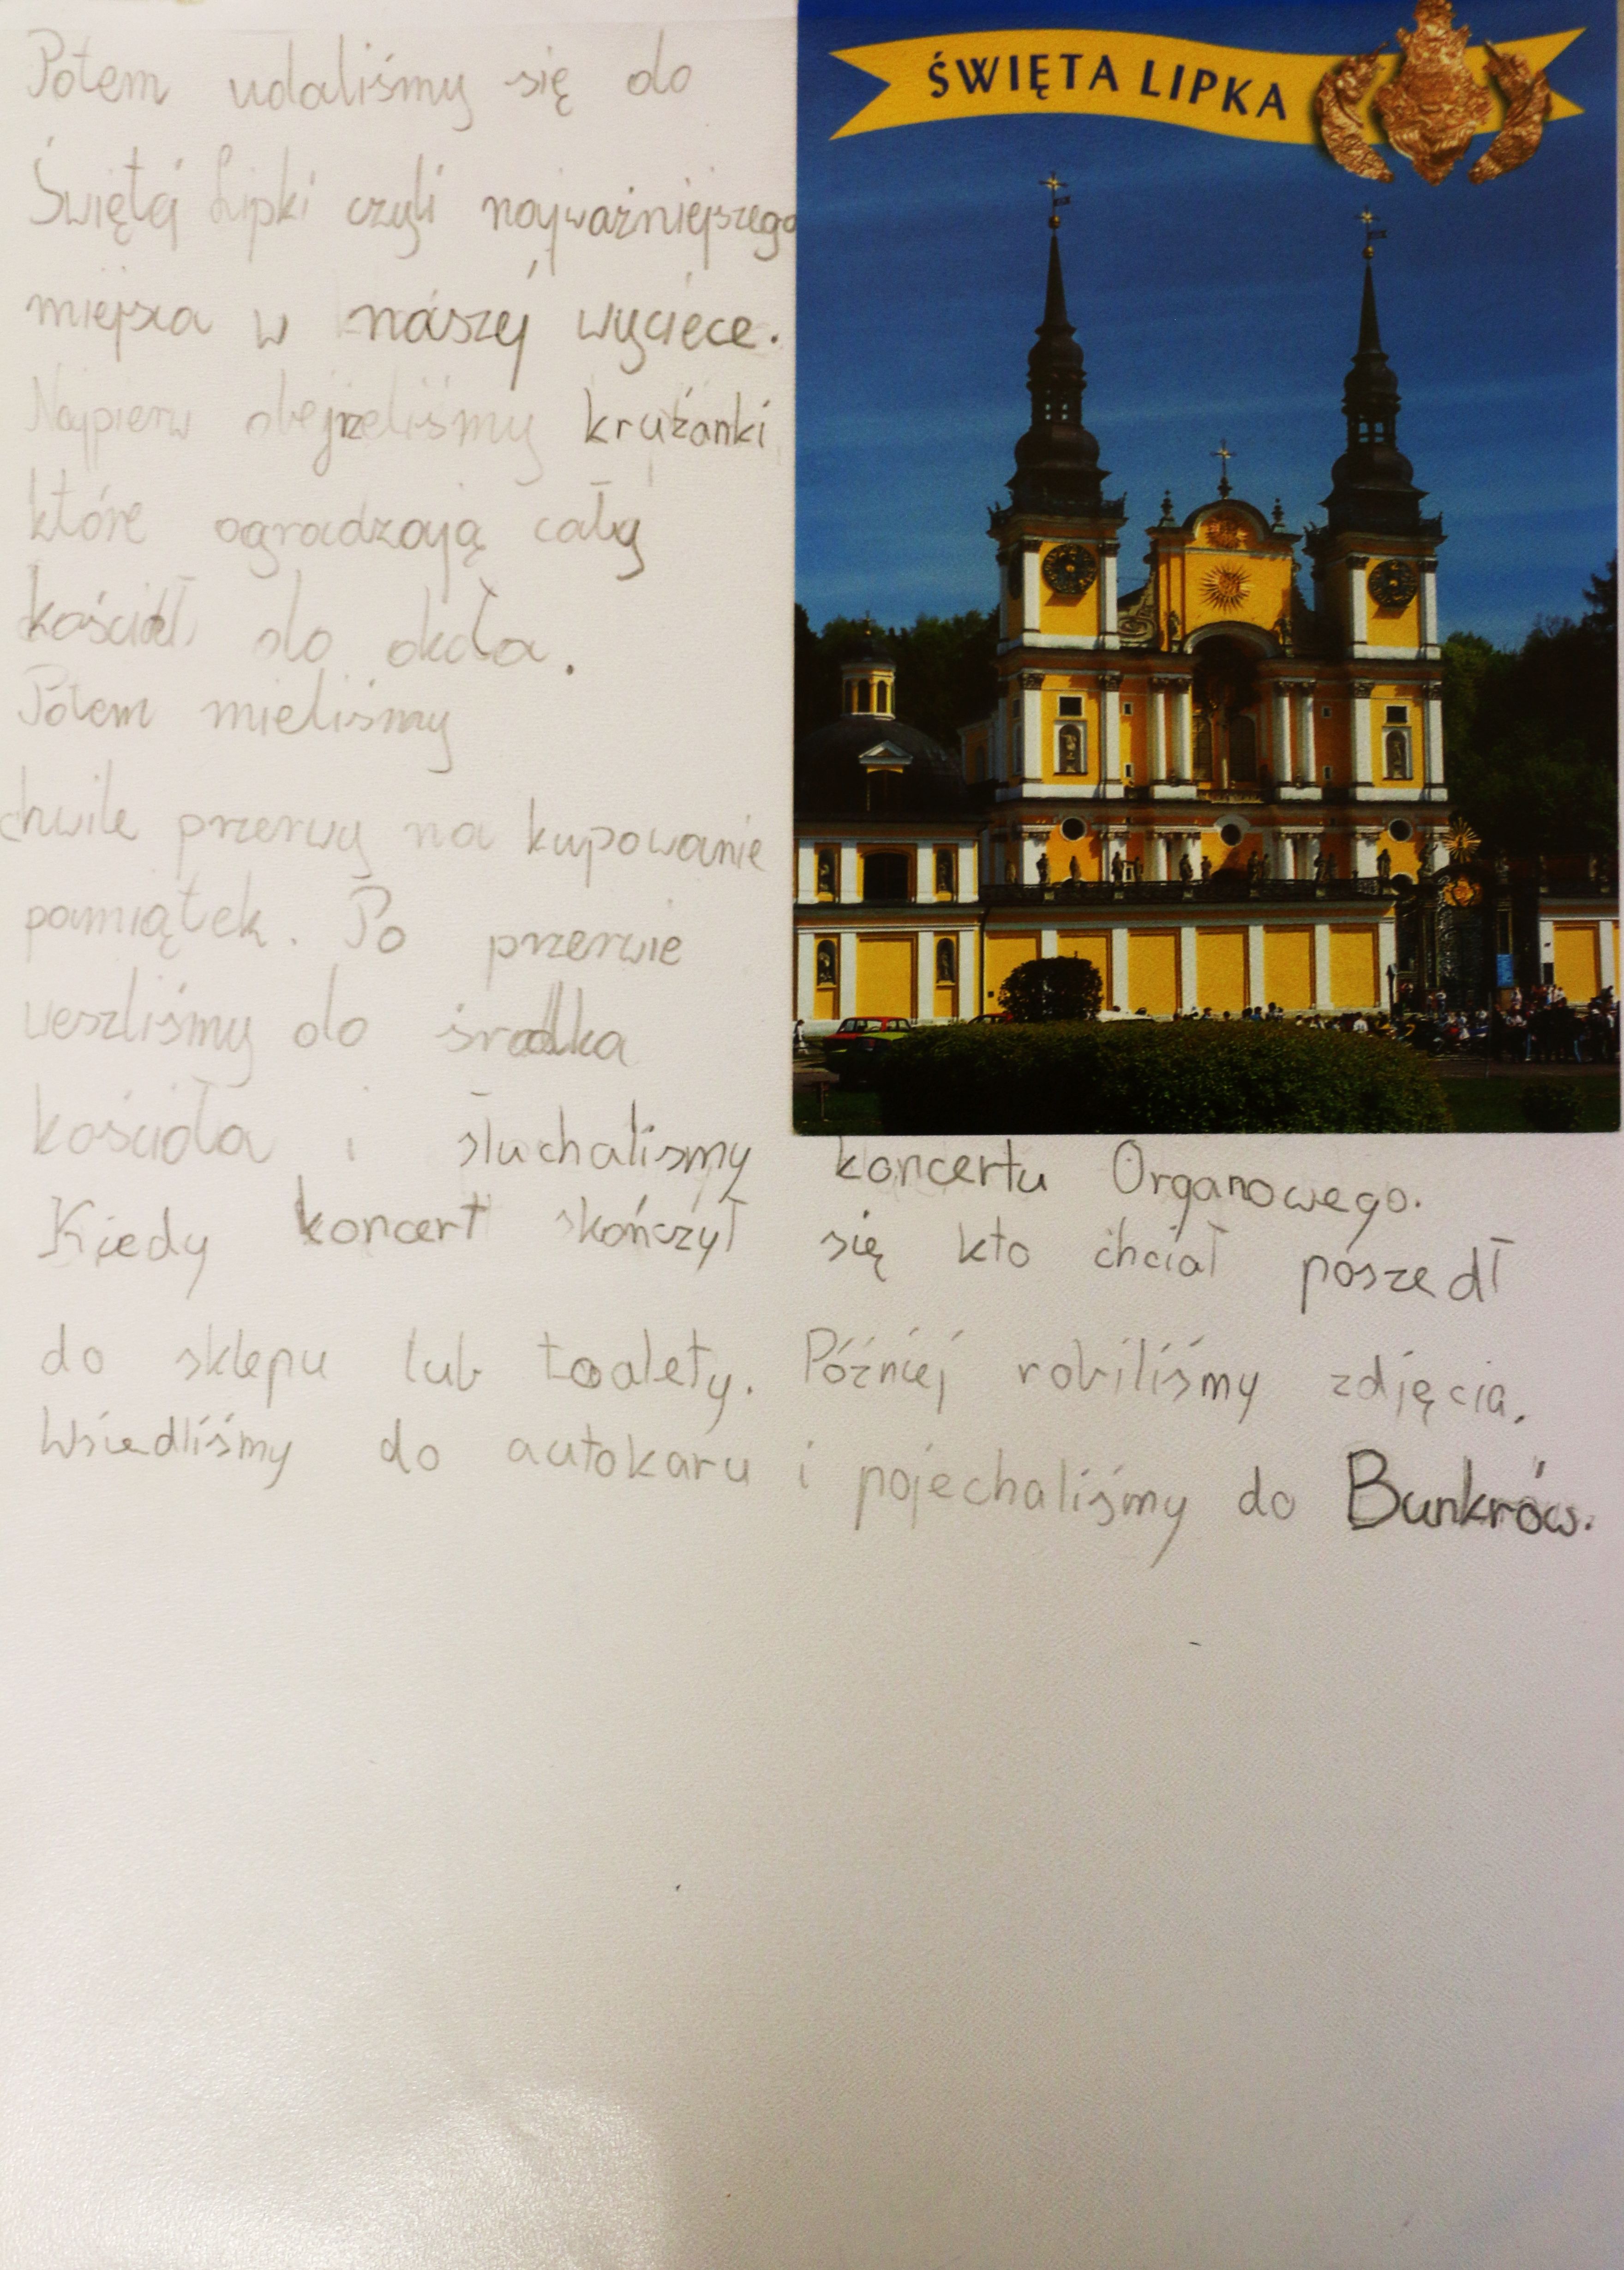 ŚWIĘTA LIPKA
Potem udaliśmy się do
Świętej Lipki czyli najważniejszego
miejsca w naszej wyciece.
Najpierw obejrzeliśmy krużanki,
które ogradzają cały
kościół do okoła.
Potem mieliśmy
chwile przerwy na kupowanie
pamiątek. Po przerwie
weszliśmy do środka
kościoła i słuchalismy koncertu Organowego.
Kiedy koncert skończył się kto chciał poszedł
do sklepu lub toalety. Później robiliśmy zdjęcia.
Wsiedliśmy do autokaru i pojechaliśmy do Bunkrów.